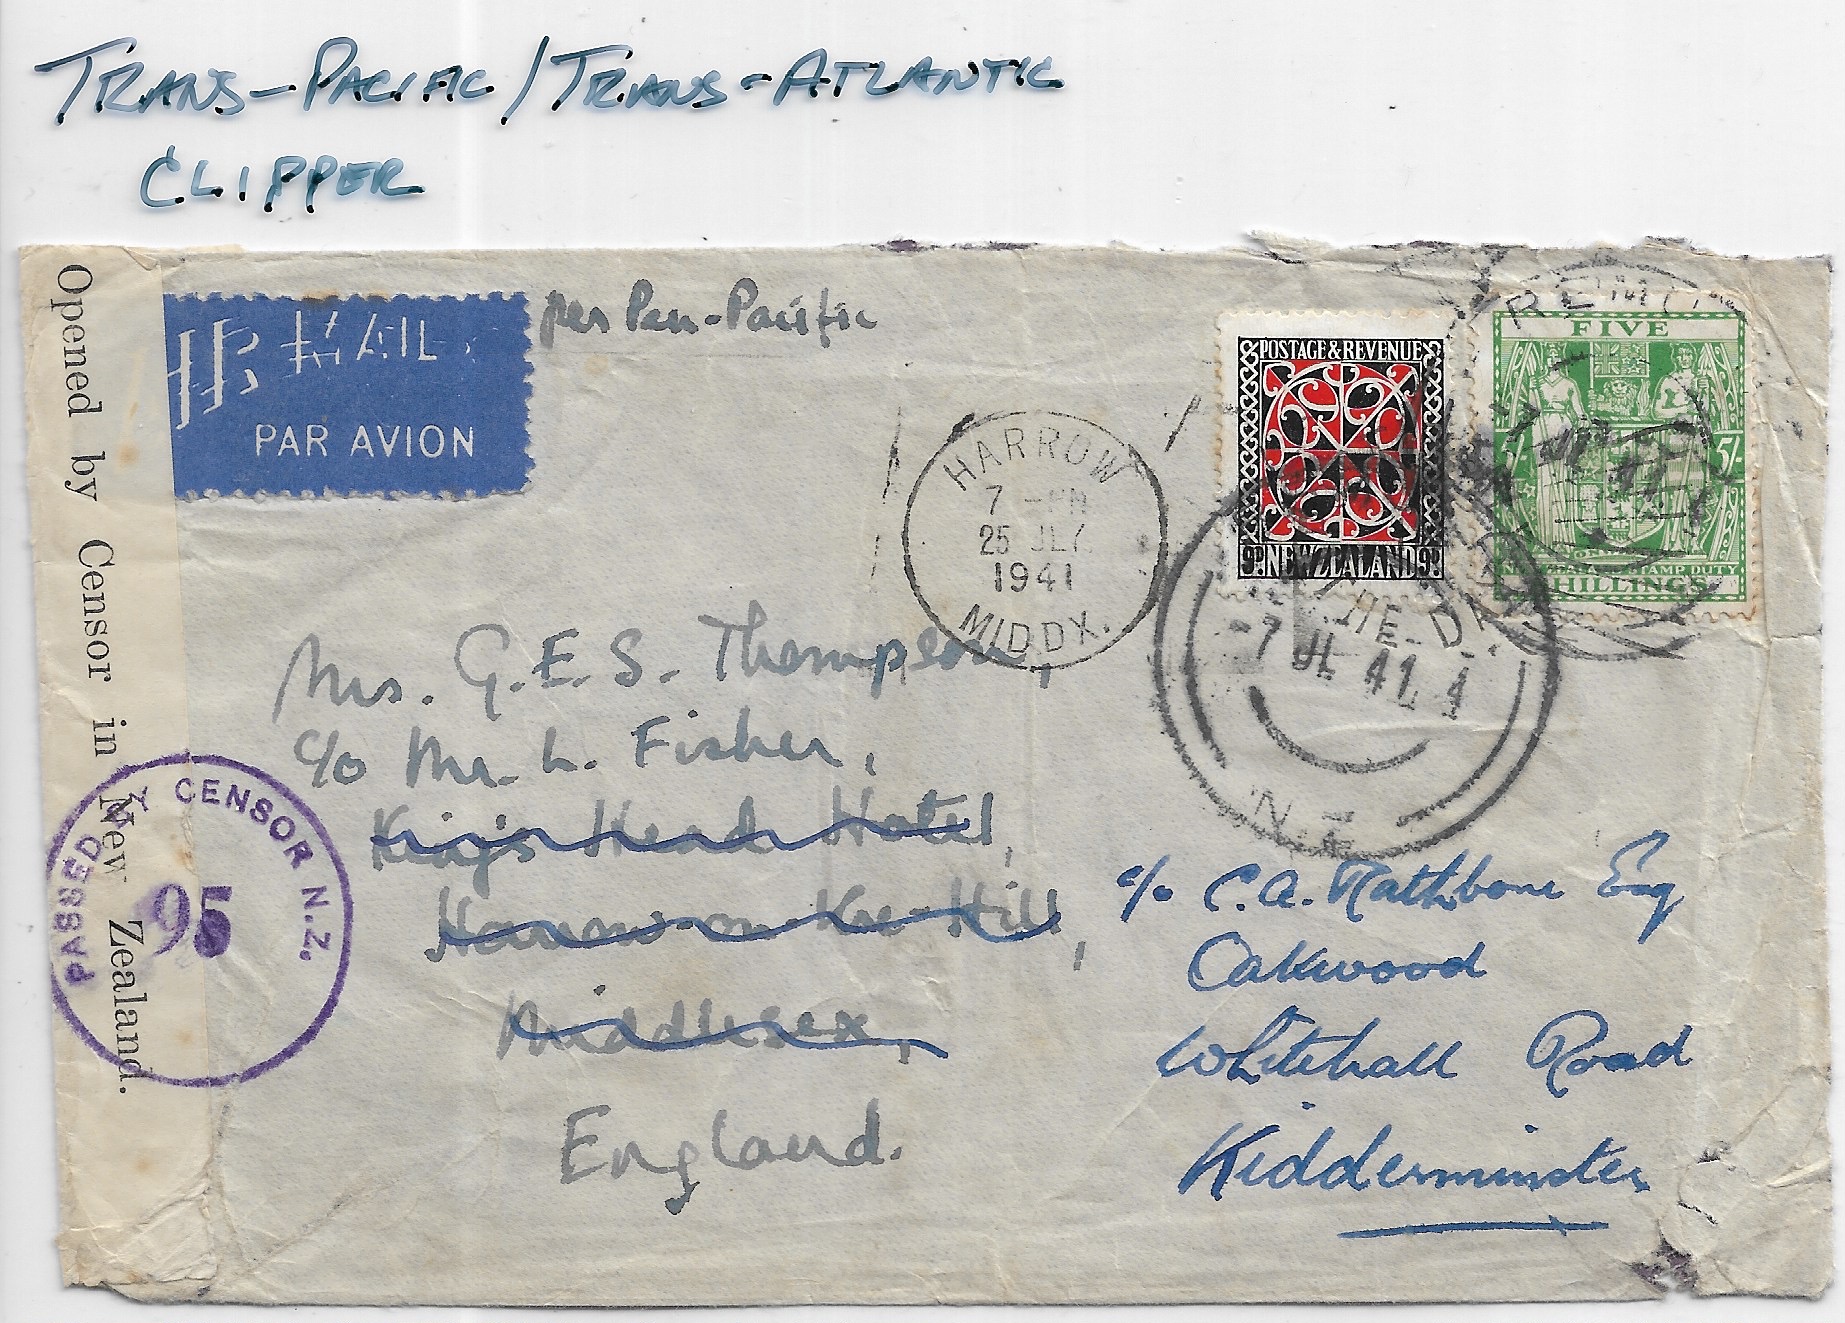 TRANS-PACIFIC/TRANS-ATLANTIC
CLIPPER
Opened by Censor in New Zealand.
MAIL
PAR AVION
per Pan-Pacific
HARROW
7 - PM
25 JLY.
1941
MIDDX.
POSTAGE & REVENUE
9D. NEW ZEALAND 9D.
FIVE
5/-
STAMP DUTY
SHILLINGS
-7 JL 41
N.Z.
PASSED BY CENSOR N.Z.
95
Mrs. G.E.S. Thompson,
c/o Mr. L. Fisher,
King's Head Hotel,
Harrow-on-the-Hill,
Middlesex,
England.
c/o C.A. Rathbone Esq
Oakwood
Whitehall Road
Kidderminster